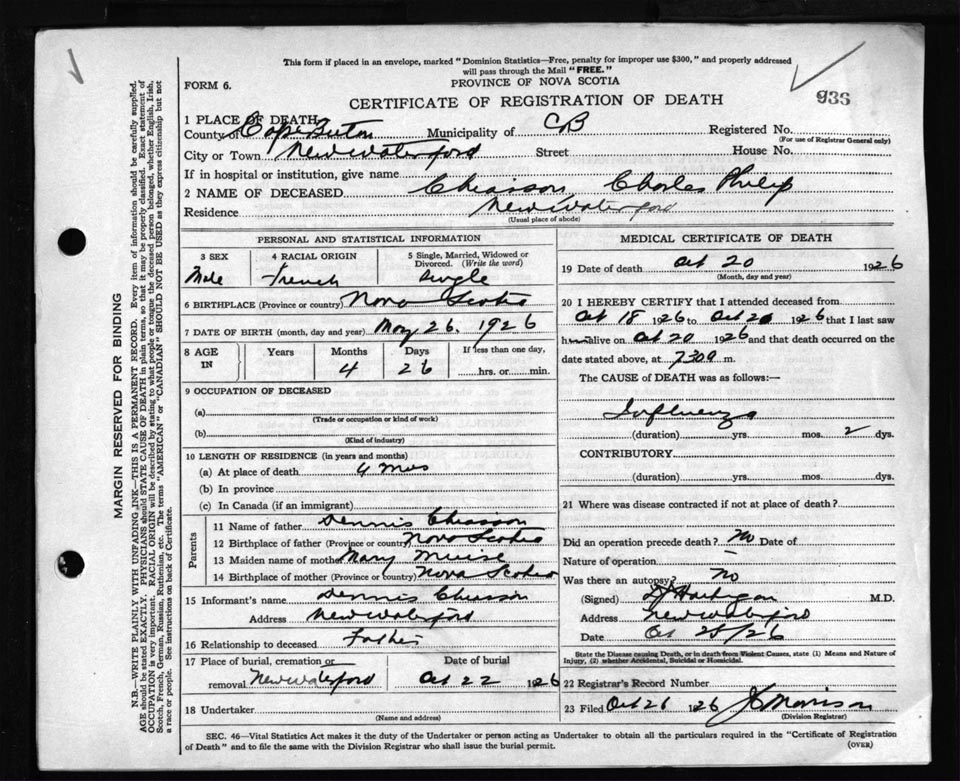 This form if placed in an envelope, marked "Dominion Statistics—Free, penalty for improper use $300," and properly addressed
will pass through the Mail "FREE."
FORM 6.
PROVINCE OF NOVA SCOTIA
936
CERTIFICATE OF REGISTRATION OF DEATH
1 PLACE OF DEATH
County of Cape Breton Municipality of CB Registered No.
(For use of Registrar General only)
City or Town New Waterford Street House No.
If in hospital or institution, give name
2 NAME OF DECEASED Chiasson Charles Philip
Residence New Waterford
(Usual place of abode)
PERSONAL AND STATISTICAL INFORMATION
3 SEX 4 RACIAL ORIGIN 5 Single, Married, Widowed or
Divorced. (Write the word)
Male French Single
6 BIRTHPLACE (Province or country) Nova Scotia
7 DATE OF BIRTH (month, day and year) May 26. 1926
8 AGE Years Months Days If less than one day,
IN 4 26 hrs. or min.
9 OCCUPATION OF DECEASED
(a)
(Trade or occupation or kind of work)
(b)
(Kind of industry)
10 LENGTH OF RESIDENCE (in years and months)
(a) At place of death 4 mos
(b) In province
(c) In Canada (if an immigrant)
Parents
11 Name of father Dennis Chiasson
12 Birthplace of father (Province or country) Nova Scotia
13 Maiden name of mother Mary Muise
14 Birthplace of mother (Province or country) Nova Scotia
15 Informant's name Dennis Chiasson
Address New Waterford
16 Relationship to deceased Father
17 Place of burial, cremation or Date of burial
removal New Waterford Oct 22 1926
18 Undertaker
(Name and address)
MEDICAL CERTIFICATE OF DEATH
19 Date of death Oct 20 1926
(Month, day and year)
20 I HEREBY CERTIFY that I attended deceased from
Oct 18 1926 to Oct 20 1926 that I last saw
h alive on Oct 20 1926 and that death occurred on the
date stated above, at m.
The CAUSE of DEATH was as follows:—
Influenza
(duration) yrs. mos. 2 dys.
CONTRIBUTORY
(duration) yrs. mos. dys.
21 Where was disease contracted if not at place of death?
Did an operation precede death? No Date of
Nature of operation —
Was there an autopsy? No
(Signed) Hartigan M.D.
Address New Waterford
Date Oct 25/26
State the Disease causing Death, or in death from Violent Causes, state (1) Means and Nature of
Injury, (2) whether Accidental, Suicidal or Homicidal.
22 Registrar's Record Number
23 Filed Oct 26 1926 Morrison
(Division Registrar)
SEC. 46—Vital Statistics Act makes it the duty of the Undertaker or person acting as Undertaker to obtain all the particulars required in the "Certificate of Registration
of Death" and to file the same with the Division Registrar who shall issue the burial permit.
(OVER)
MARGIN RESERVED FOR BINDING
N.B.—WRITE PLAINLY WITH UNFADING INK—THIS IS A PERMANENT RECORD. Every item of information should be carefully supplied.
AGE should be stated EXACTLY. PHYSICIANS should STATE CAUSE OF DEATH in plain terms, so that it may be properly classified. Exact statement of
OCCUPATION is very important. RACIAL ORIGIN will be described by stating to what people or tongue the deceased person belonged, whether English, Irish,
Scotch, French, German, Russian, Ruthenian, etc. The terms "AMERICAN" or "CANADIAN" SHOULD NOT BE USED as they express citizenship but not
a race or people. See instructions on back of Certificate.